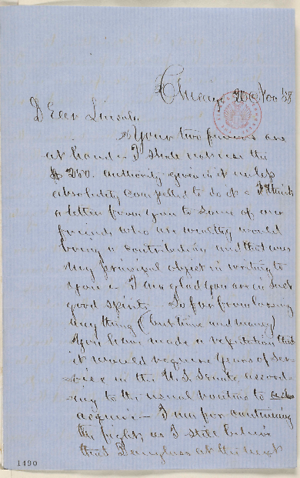 Chicago 20 Nov 58
Dear Lincoln.
Your two favors are
at hand – I shall not use the
$250. authority given it unless
absolutely compelled to do it – I think
a letter from you to some of our
friends who are wealthy would
bring a contribution and that was
my principal object in writing to
you – I am glad you are in such
good spirits So far from losing
any thing (but time and money)
You have made a reputation that
it would require years of ser-
vice in the U.S. Senate accord-
ing to the usual routine to
acquire – I am for continuing
the fight, as I still believe
that Douglass at the next
1490